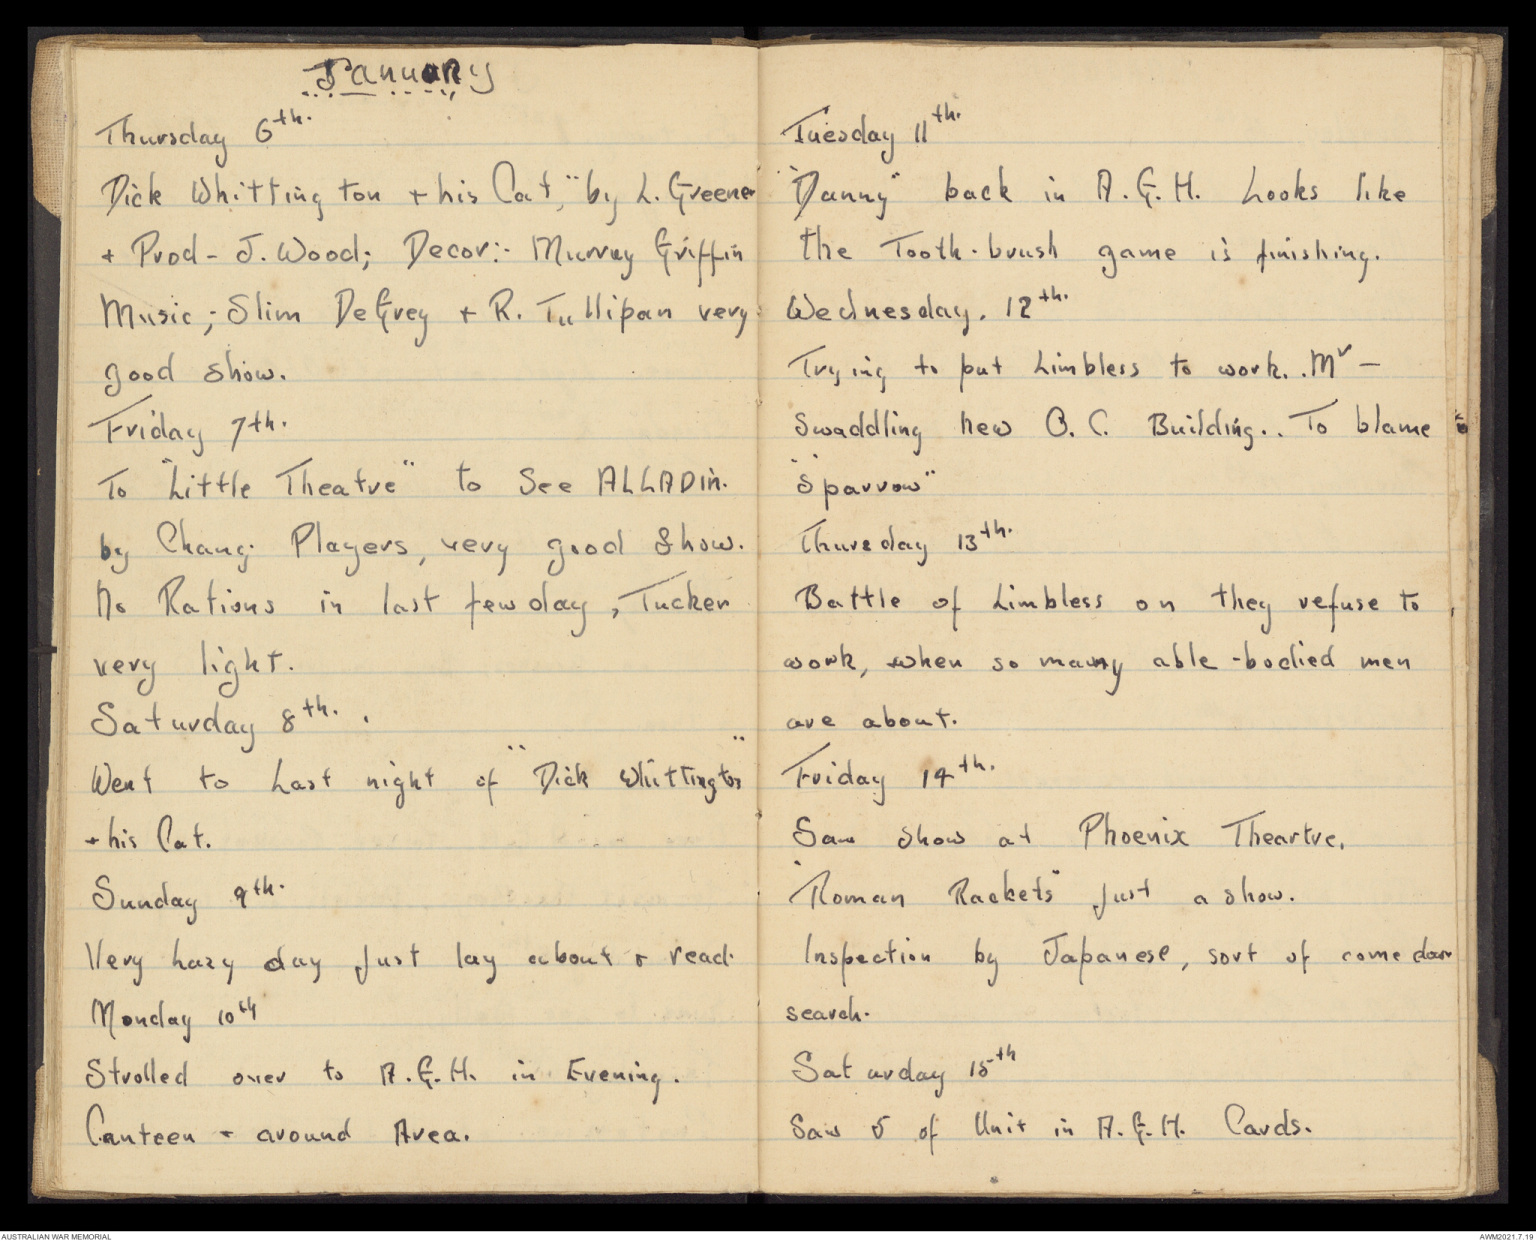 January
Thursday 6th.
Dick Whittington + his Cat," by L. Greener
+ Prod - J. Wood; Decor:- Murray Griffin
Music;- Slim DeGrey + R. Tullipan very
good show.
Friday 7th.
To "Little Theatre" to See ALLADIN.
by Changi Players, very good Show.
No Rations in last few day, Tucker
very light.
Saturday 8th.
Went to Last night of "Dick Whittington"
+ his Cat.
Sunday 9th.
Very Lazy day Just lay about & read.
Monday 10th
Strolled over to A.G.H. in Evening.
Canteen + around Area.
Tuesday 11th.
"Danny" back in A.G.H. Looks like
the Tooth-brush game is finishing.
Wednesday. 12th.
Trying to put Limbless to work. Mr -
Swaddling new O.C. Building.. To blame to
"Sparrow"
Thursday 13th.
Battle of Limbless on they refuse to
work, when so many able-bodied men
are about.
Friday 14th.
Saw Show at Phoenix Theartre.
"Roman Rackets" Just a show.
Inspection by Japanese, sort of come
search.
Saturday 15th
Saw 5 of Unit in A.G.H. Cards.
AUSTRALIAN WAR MEMORIAL
AWM2021.7.19